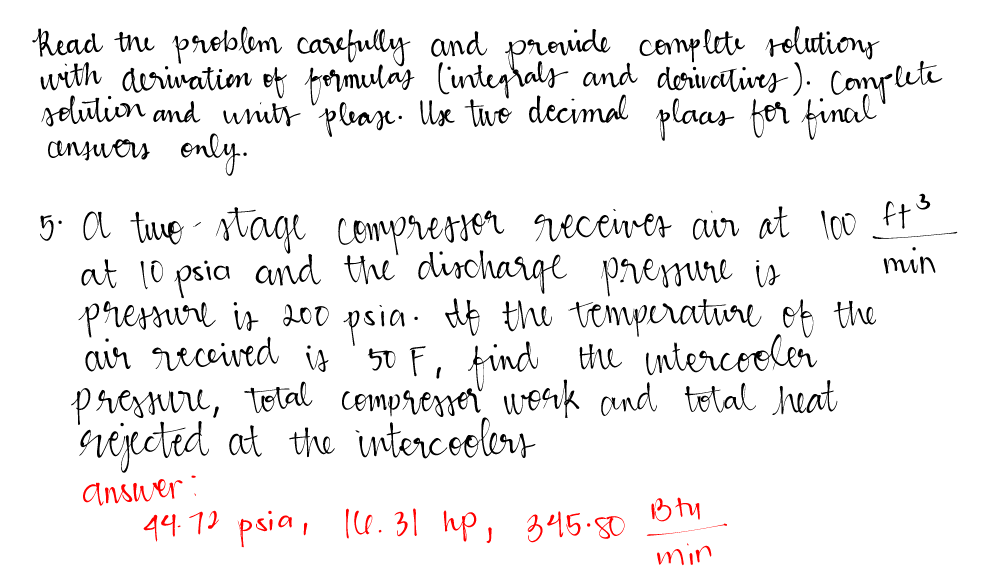 Read the problem carefully and provide complete solutions
with derivation of formulas (integrals and derivatives). Complete
solution and units please. Use two decimal places for final
answers only.
5. A two-stage compressor receives air at 100 ft³/min
at 10 psia and the discharge pressure is
pressure is 200 psia. If the temperature of the
air received is 50 F, find the intercooler
pressure, total compressor work and total heat
rejected at the intercoolers
answer:
44.72 psia, 16.31 hp, 345.80 Btu/min